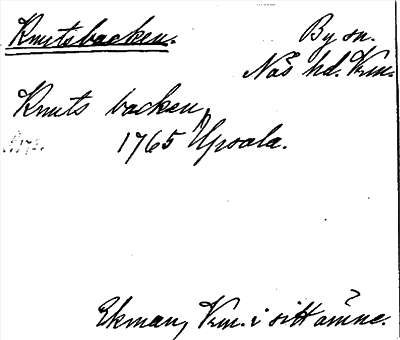 Knutsbacken. By sn.
Näs hd. Vrm.
Knuts backen,
1765 Upsala.
Ekman, Vrm. i sitt ämne.